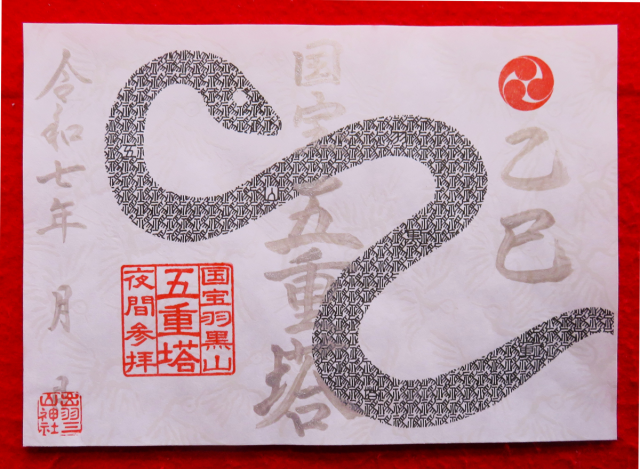 乙巳
国宝 五重塔
令和七年 月 日
国宝羽黒山
五重塔
夜間参拝
出羽三
山神社